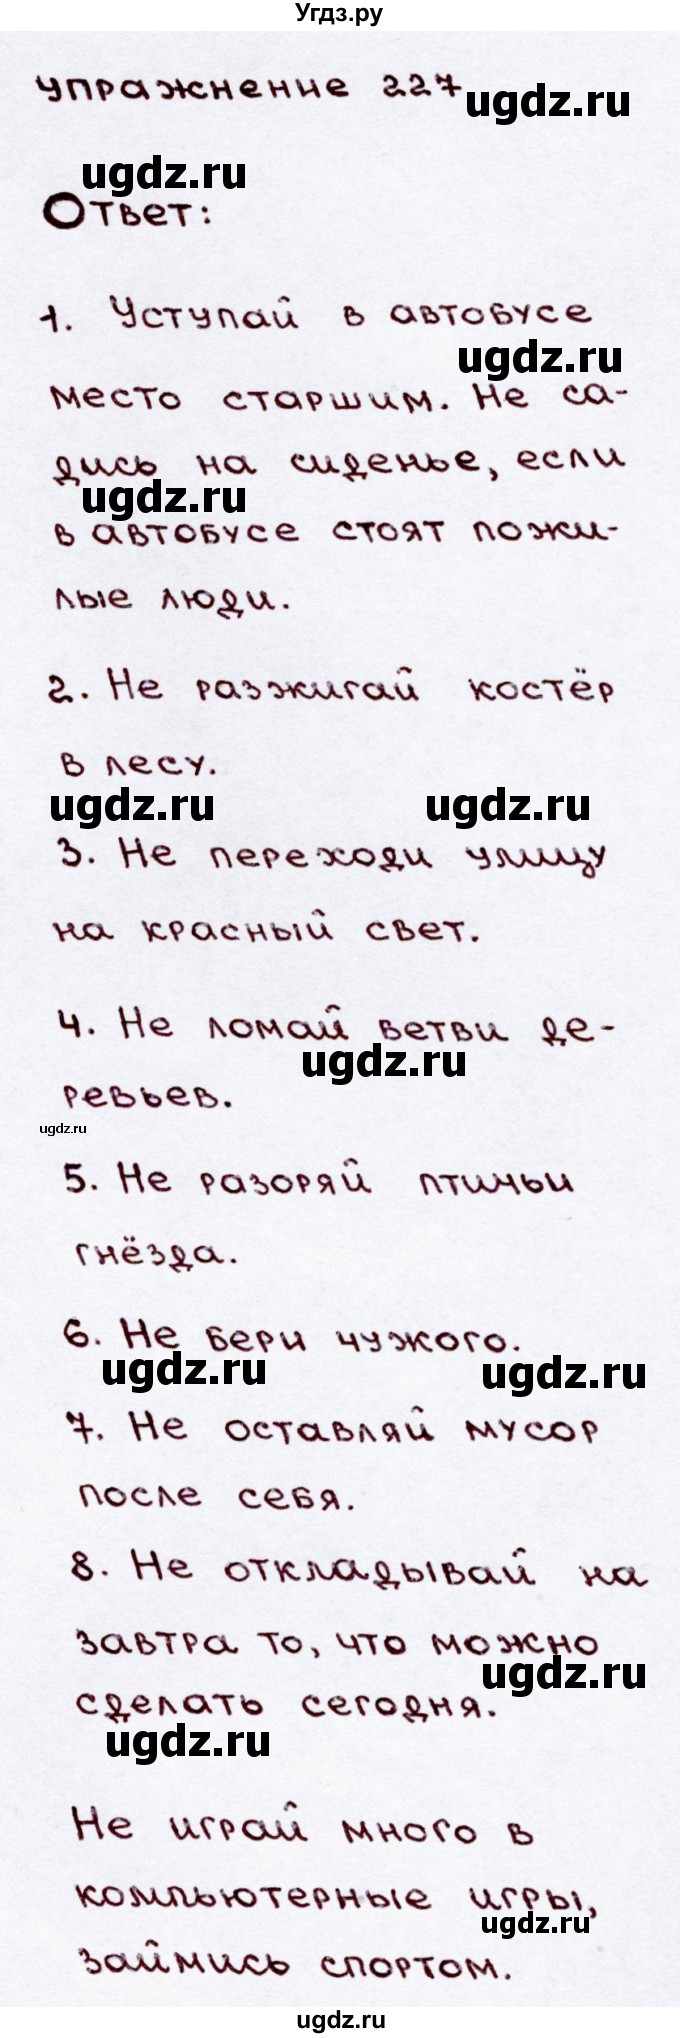 Угдз.ру
упражнение 227
ugdz.ru
ugdz.ru
Ответ:
1. Уступай в автобусе
ugdz.ru
место старшим. Не са-
дись на сиденье, если
ugdz.ru
в автобусе стоят пожи-
лые люди.
2. Не разжигай костёр
в лесу.
ugdz.ru ugdz.ru
3. Не переходи улицу
на красный свет.
4. Не ломай ветви де-
ugdz.ru
ревьев.
ugdz.ru
5. Не разоряй птичьи
гнёзда.
6. Не бери чужого.
ugdz.ru ugdz.ru
7. Не оставляй мусор
после себя.
8. Не откладывай на
завтра то, что можно
ugdz.ru
сделать сегодня.
ugdz.ru
Не играй много в
компьютерные игры,
ugdz.ru
займись спортом.
ugdz.ru